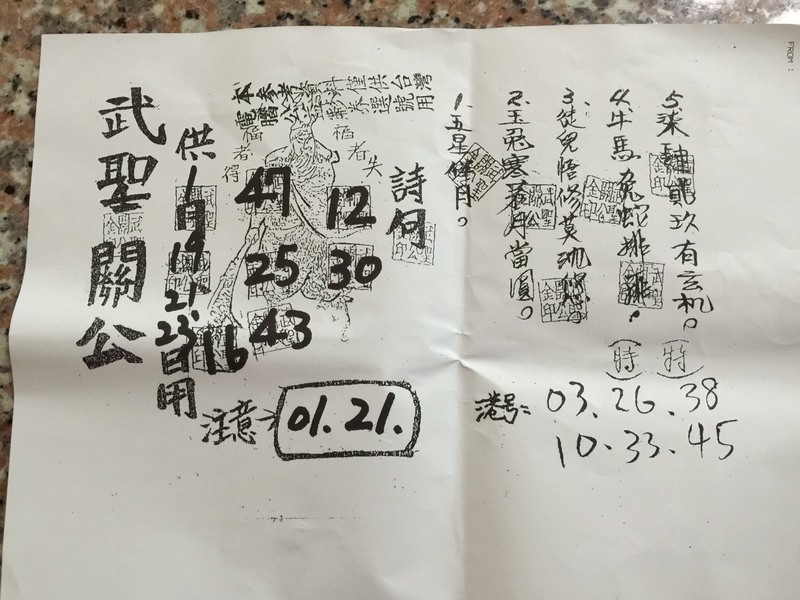 武聖關公
供1月19.21.23日用
本參考資料僅供台灣
電腦公益彩券選號用
福者得
者失
47 12
25 30
43
16
注意→01.21.
詩句
1.五星伴月。
2.玉兔寒月當圓。
3.徒兒悟修莫
4.牛馬兔蛇排！(特)
5.柒貳玖有玄机。(特)
港号: 03.26.38
10.33.45
FROM: